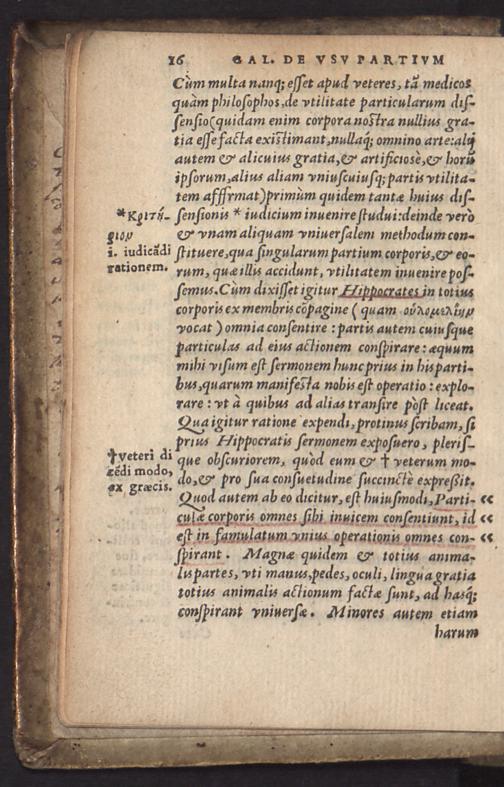 16 GAL. DE VSV PARTIVM
Cùm multa nanq; esset apud veteres, tā medicos
quàm philosophos, de vtilitate particularum dis-
sensio (quidam enim corpora nostra nullius gra-
tia esse facta existimant, nullaq́; omnino arte: alij
autem & alicuius gratia, & artificiosè, & horū
ipsorum, alius aliam vniuscuiusq; partis vtilita-
tem affirmat) primùm quidem tantæ huius dis-
sensionis * iudicium inuenire studui: deinde verò
& vnam aliquam vniuersalem methodum con-
stituere, qua singularum partium corporis, & eo-
rum, quæ illis accidunt, vtilitatem inuenire pos-
semus. Cùm dixisset igitur Hippocrates in totius
corporis ex membris cōpagine (quam οὐλομελίην
vocat) omnia consentire: partis autem cuiusque
particulas ad eius actionem conspirare: æquum
mihi visum est sermonem hunc prius in his parti-
bus, quarum manifesta nobis est operatio: explo-
rare: vt à quibus ad alias transire pòst liceat.
Qua igitur ratione expendi, protinus scribam, si
prius Hippocratis sermonem exposuero, pleris-
que obscuriorem, quòd eum & † veterum mo-
do, & pro sua consuetudine succinctè expressit.
Quod autem ab eo dicitur, est huiusmodi, Parti- “
culæ corporis omnes sibi inuicem consentiunt, id “
est in famulatum vnius operationis omnes con- “
spirant. Magnæ quidem & totius anima-
lis partes, vti manus, pedes, oculi, lingua gratia
totius animalis actionum factæ sunt, ad hasq́;
conspirant vniuersæ. Minores autem etiam
harum
*Κριτή-
ριον
i. iudicādi
rationem.
†veteri di
cēdi modo,
ex græcis.